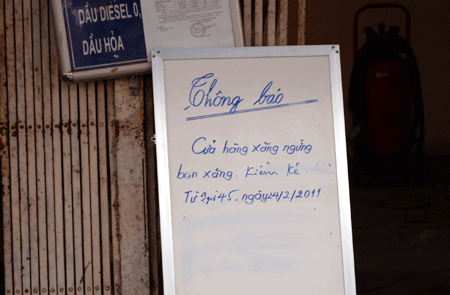 DẦU DIESEL 0,
DẦU HỎA
Thông báo
Cửa hàng xăng ngừng
bán xăng. Kiểm kê
Từ 9giờ45. ngày24/2/2011